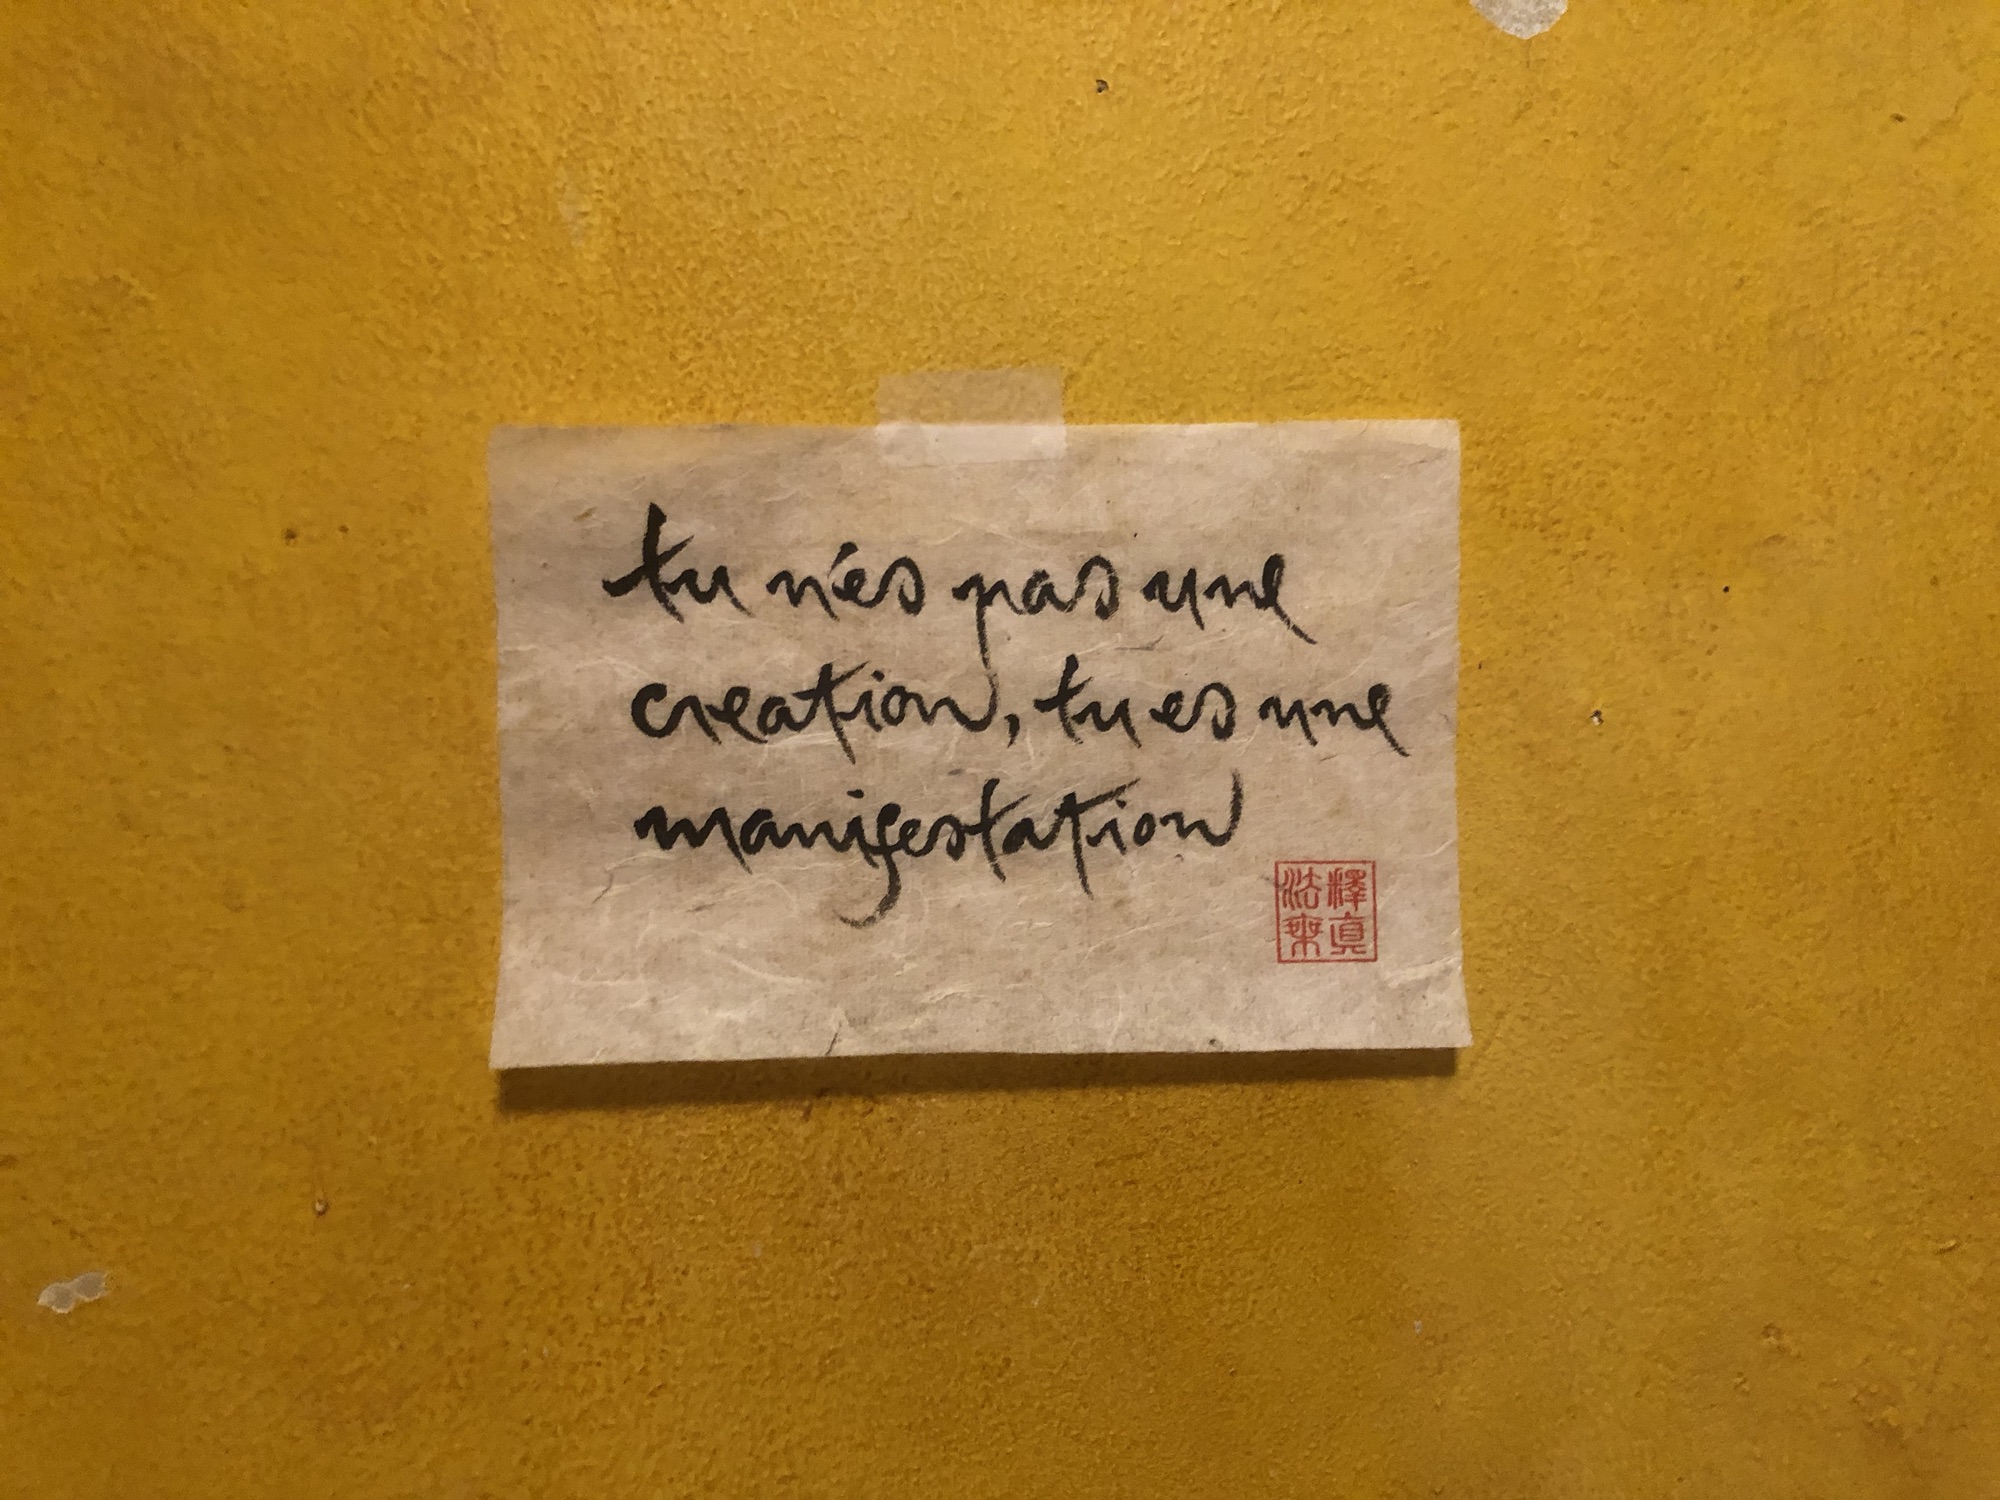 tu n'es pas une
creation, tu es une
manifestation
釋真
法乘